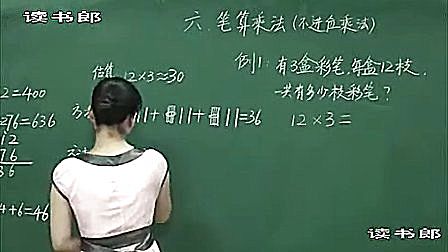 读书郎
六、笔算乘法(不进位乘法)
估算 12×3≈30
例1:有3盒彩笔,每盒12枝,
一共有多少枝彩笔?
12×3=
2=400
76=636
12
76
36
4+6=46
=36
读书郎